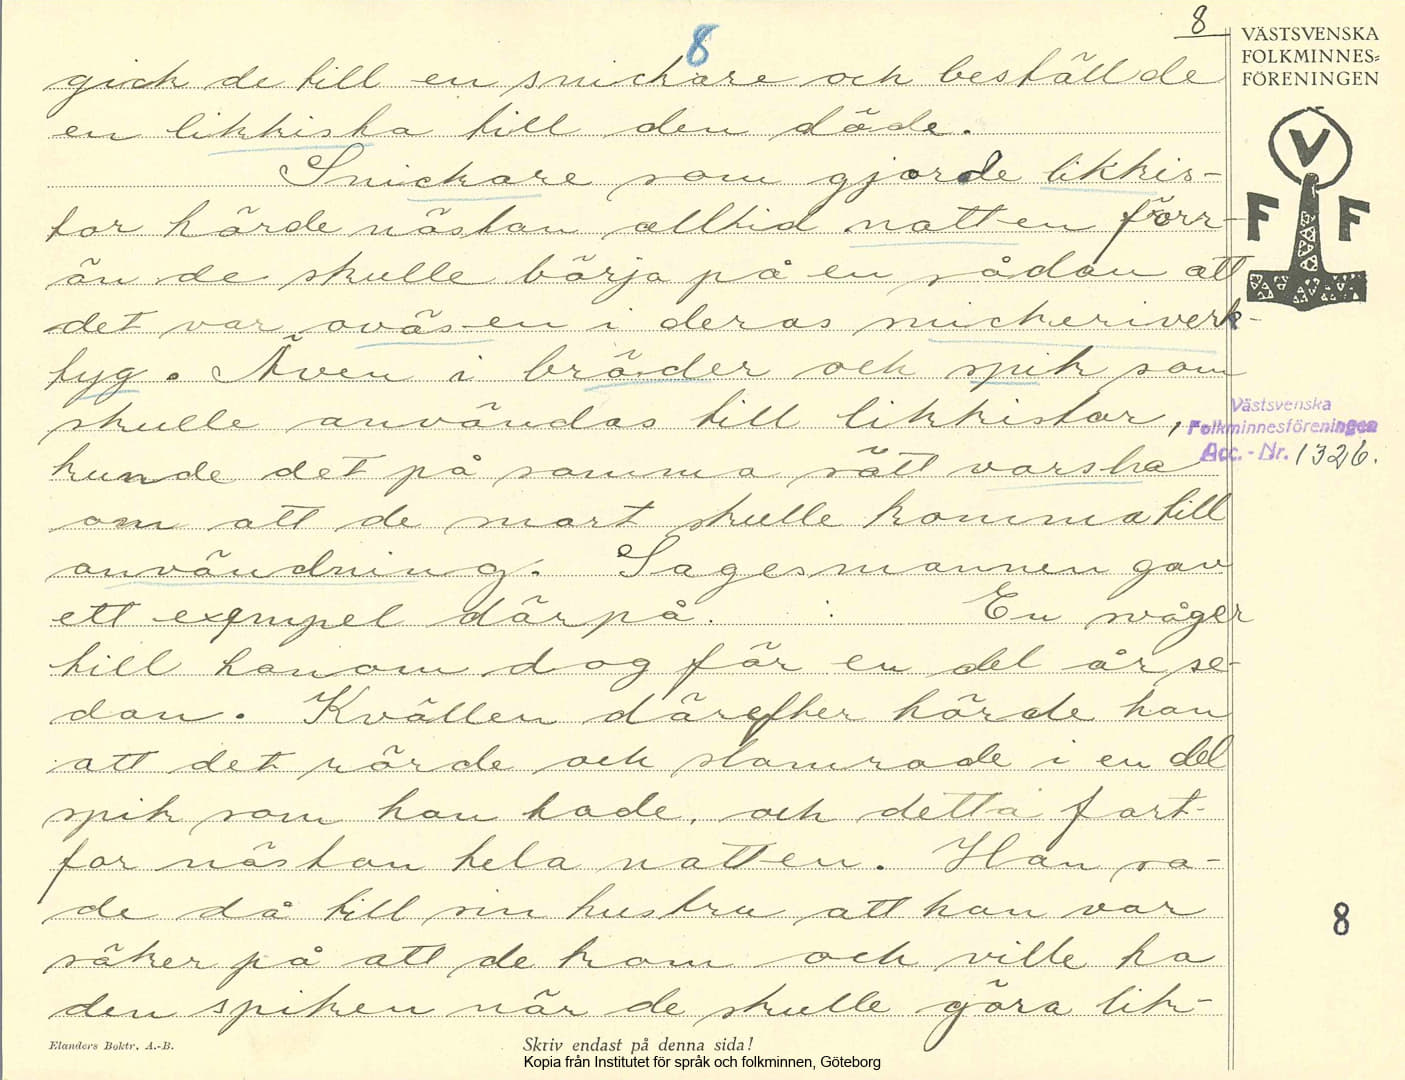 8
8
VÄSTSVENSKA
FOLKMINNES=
FÖRENINGEN
V
F F
gick de till en snickare och beställde
en likkista till den döde.
Snickare som gjorde likkis-
tor hörde nästan alltid natten förr-
än de skulle börja på en sådan att
det var oväsen i deras snickeriverk-
tyg. Även i bräder och spik som
skulle användas till likkistor,
kunde det på samma sätt varsla
om att de snart skulle komma till
användning. Sagesmannen gav
ett exempel därpå. : En svåger
till honom dog för en del år se-
dan. Kvällen därefter hörde han
att det rörde och slamrade i en del
spik som han hade, och detta fort-
for nästan hela natten. Han sa-
de då till sin hustru att han var
säker på att de kom och ville ha
den spiken när de skulle göra lik-
Västsvenska
Folkminnesföreningen
Acc.-Nr. 1326.
8
Elanders Boktr. A.-B.
Skriv endast på denna sida!
Kopia från Institutet för språk och folkminnen, Göteborg